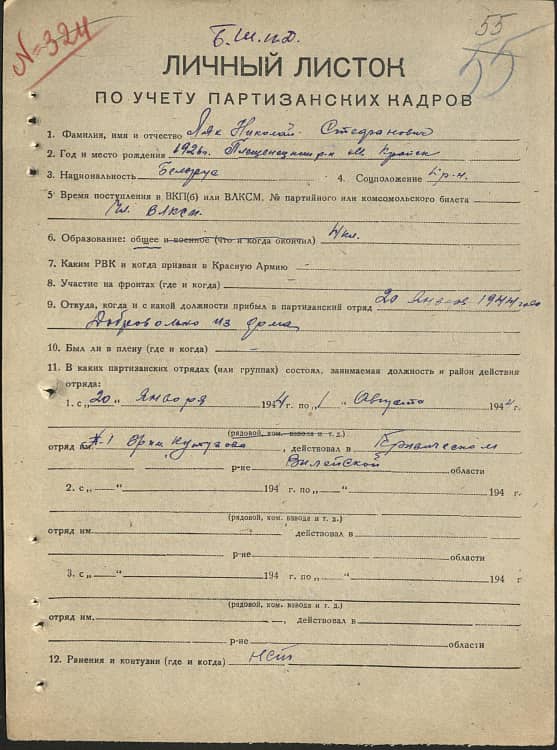 №324
Б.Ш.П.Д.
55
55
ЛИЧНЫЙ ЛИСТОК
ПО УЧЕТУ ПАРТИЗАНСКИХ КАДРОВ
1. Фамилия, имя и отчество Ляк Николай Стефанович
2. Год и место рождения 1926г. Плещеницкий р-н д. Крайск
3. Национальность Белорус 4. Соцположение кр-н.
5. Время поступления в ВКП(б) или ВЛКСМ, № партийного или комсомольского билета
Чл. ВЛКСМ.
6. Образование: общее и военное (что и когда окончил) 4 кл.
7. Каким РВК и когда призван в Красную Армию —
8. Участие на фронтах (где и когда)
9. Откуда, когда и с какой должности прибыл в партизанский отряд 20 января 1944 года
Добровольно из дома
10. Был ли в плену (где и когда) -
11. В каких партизанских отрядах (или группах) состоял, занимаемая должность и район действия
отряда:
1. с „20 “ января 1944 г. по „1 “ Августа 1944 г.
(рядовой, ком. взвода и т. д.)
отряд им. №-1 Бр-ды Кутузова, действовал в
р-не Вилейской области
2. с „ “ 194 г. по „ “ 194 г.
(рядовой, ком. взвода и т. д.)
отряд им. действовал в
р-не области
3. с „ “ 194 г. по „ “ 194 г.
(рядовой, ком. взвода и т. д.)
отряд им. , действовал в
р-не области
12. Ранения и контузии (где и когда) нет